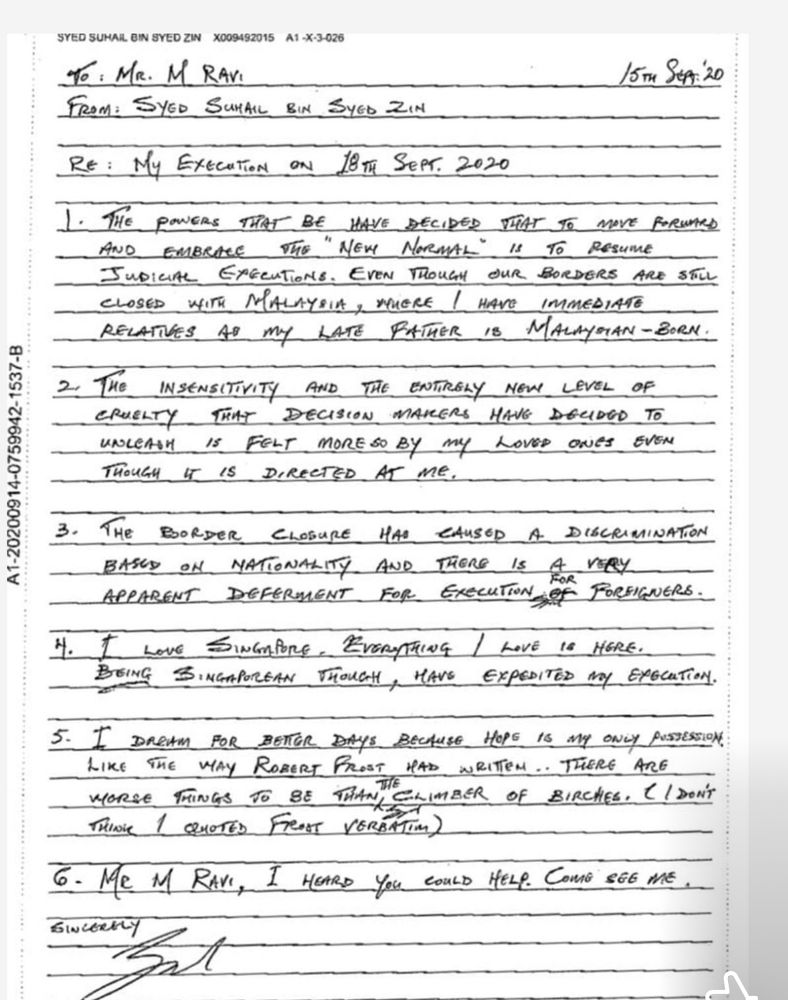 SYED SUHAIL BIN SYED ZIN X009492015 A1-X-3-026
TO: MR. M RAVI 15TH SEPT.'20
FROM: SYED SUHAIL BIN SYED ZIN
RE: MY EXECUTION ON 18TH SEPT. 2020
1. THE POWERS THAT BE HAVE DECIDED THAT TO MOVE FORWARD
AND EMBRACE THE "NEW NORMAL" IS TO RESUME
JUDICIAL EXECUTIONS. EVEN THOUGH OUR BORDERS ARE STILL
CLOSED WITH MALAYSIA, WHERE I HAVE IMMEDIATE
RELATIVES AS MY LATE FATHER IS MALAYSIAN-BORN.
2. THE INSENSITIVITY AND THE ENTIRELY NEW LEVEL OF
CRUELTY THAT DECISION MAKERS HAVE DECIDED TO
UNLEASH IS FELT MORE SO BY MY LOVED ONES EVEN
THOUGH IT IS DIRECTED AT ME.
3. THE BORDER CLOSURE HAS CAUSED A DISCRIMINATION
BASED ON NATIONALITY AND THERE IS A VERY
APPARENT DEFERMENT FOR EXECUTION FOR FOREIGNERS.
4. I LOVE SINGAPORE. EVERYTHING I LOVE IS HERE.
BEING SINGAPOREAN THOUGH, HAVE EXPEDITED MY EXECUTION.
5. I DREAM FOR BETTER DAYS BECAUSE HOPE IS MY ONLY POSSESSION.
LIKE THE WAY ROBERT FROST HAD WRITTEN.. THERE ARE
WORSE THINGS TO BE THAN THE CLIMBER OF BIRCHES. (I DON'T
THINK I QUOTED FROST VERBATIM)
6. MR M RAVI, I HEARD YOU COULD HELP. COME SEE ME.
SINCERELY
A1-20200914-0759942-1537-B